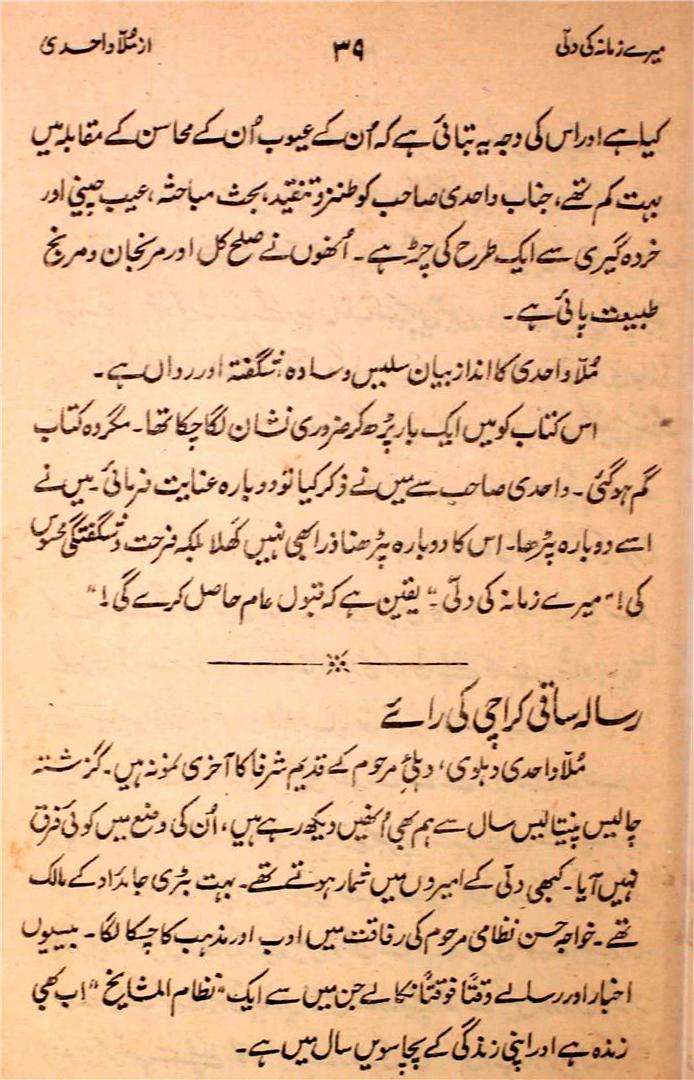 میرے زمانہ کی دلّی ۳۹ از مُلّا واحدی
کیا ہے اور اس کی وجہ یہ بتائی ہے کہ اُن کے عیوب اُن کے محاسن کے مقابلہ میں
بہت کم تھے، جناب واحدی صاحب کو طنز و تنقید، بحث مباحثہ، عیب چینی اور
خردہ گیری سے ایک طرح کی چڑ ہے۔ اُنھوں نے صلح کل اور مرنجان و مرنج
طبیعت پائی ہے۔
مُلّا واحدی کا اندازِ بیان سلیس و سادہ، شگفتہ اور رواں ہے۔
اس کتاب کو میں ایک بار پڑھ کر ضروری نشان لگا چکا تھا۔ مگر وہ کتاب
گم ہو گئی۔ واحدی صاحب سے میں نے ذکر کیا تو دوبارہ عنایت فرمائی۔ میں نے
اسے دوبارہ پڑھا۔ اس کا دوبارہ پڑھنا ذرا بھی نہیں کھَلا بلکہ فرحت و شگفتگی محسوس
کی! "میرے زمانہ کی دلّی۔" یقین ہے کہ قبول عام حاصل کرے گی!"
رسالہ ساقی کراچی کی رائے
مُلّا واحدی دہلوی، دہلیٔ مرحوم کے قدیم شرفا کا آخری نمونہ ہیں۔ گزشتہ
چالیس پنتالیس سال سے ہم بھی اُنھیں دیکھ رہے ہیں، اُن کی وضع میں کوئی فرق
نہیں آیا۔ کبھی دلّی کے امیروں میں شمار ہوتے تھے۔ بہت بڑی جائداد کے مالک
تھے۔ خواجہ حسن نظامی مرحوم کی رفاقت میں ادب اور مذہب کا چسکا لگا۔ بیسیوں
اخبار اور رسالے وقتاً فوقتاً نکالے جن میں سے ایک "نظام المشایخ" اب بھی
زندہ ہے اور اپنی زندگی کے پچاسویں سال میں ہے۔